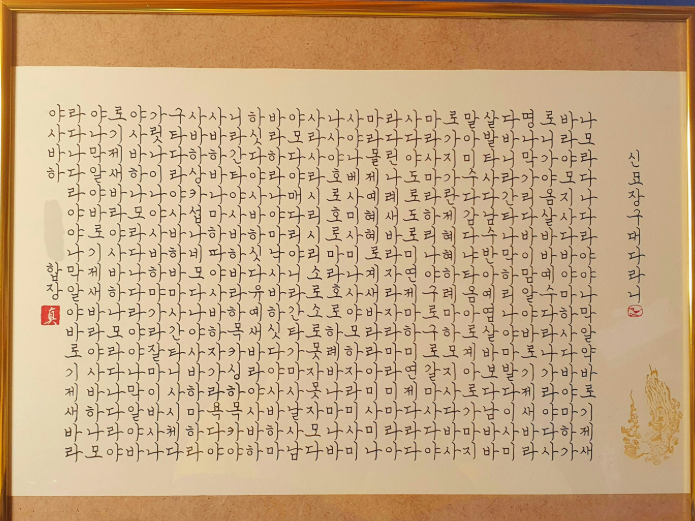 신묘장구대다라니
나모라다나다라야야나막알약바로기제새
바라야모지사다바야마하사다바야마하가
로니가야옴살바바예수다라나가라야다사
명나막가리다바이맘알야바로기제새바라
다바니라간타나막하리나야마발다이사미
살발타사다남수반아예염살바보다남바바
말아미수다감다냐타옴아로계아로가마지
로가지가란제혜혜하례마하모지사다바사
마라사마라하리나야구로구로갈마사다야
사다야도로도로미연제마하미연제다라다
라다린나례새바라자라자라마라미마라아
마라몰제예혜혜로계새바라라아미사미나
사야나베사미사미나사야모하자라미사미
나사야호로호로마라호로하례바나마나바
사라사라시리시리소로소로못자못자모다
야모다야매다리야니라간타가마사날사남
바라하라나야마낙사바하싯다야사바하마
하싯다야사바하싯다유예새바라야사바하
니라간타야사바하바라하목카싱하목카야
사바하바나마하따야사바하자가라욕다야
사바하상카섭나네모다나야사바하마하라
구타다라야사바하바마사간타이사시체다
가릿나이나야사바하먀가라잘마이바사나
야사바하나모라다나다라야야나막알야바
로기제새바라야사바하나모라다나다라야
야나막알야바로기제새바라야사바하나모
라다나다라야야나막알야바로기제새바라
야사바하
합장